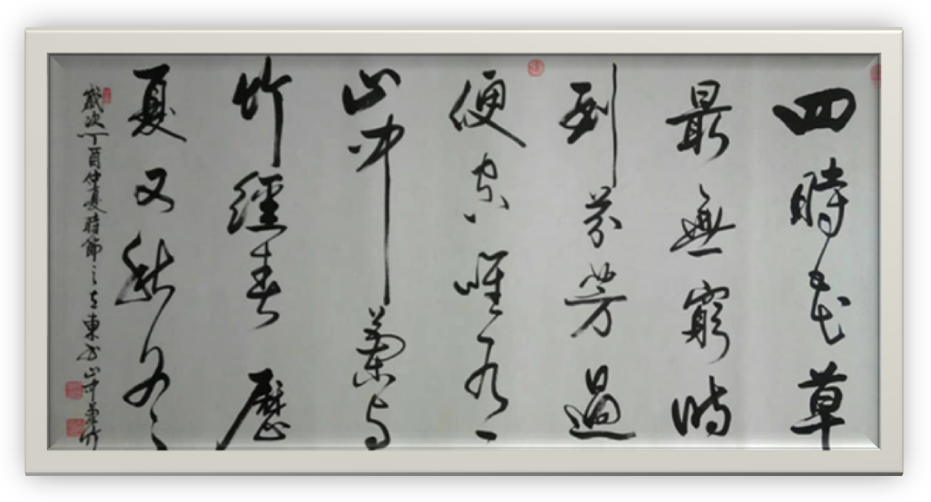 四時花草
最無窮時
到芬芳過
便空唯有
山中蘭与
竹經春歷
夏又秋冬
歲次丁酉仲夏時節東山中蘭竹